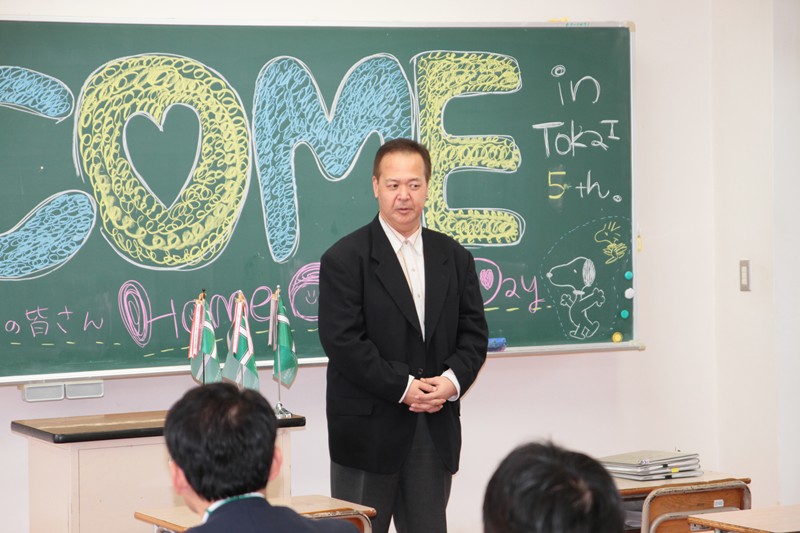 COME
in
TokaI
5th.
の皆さん Home Day